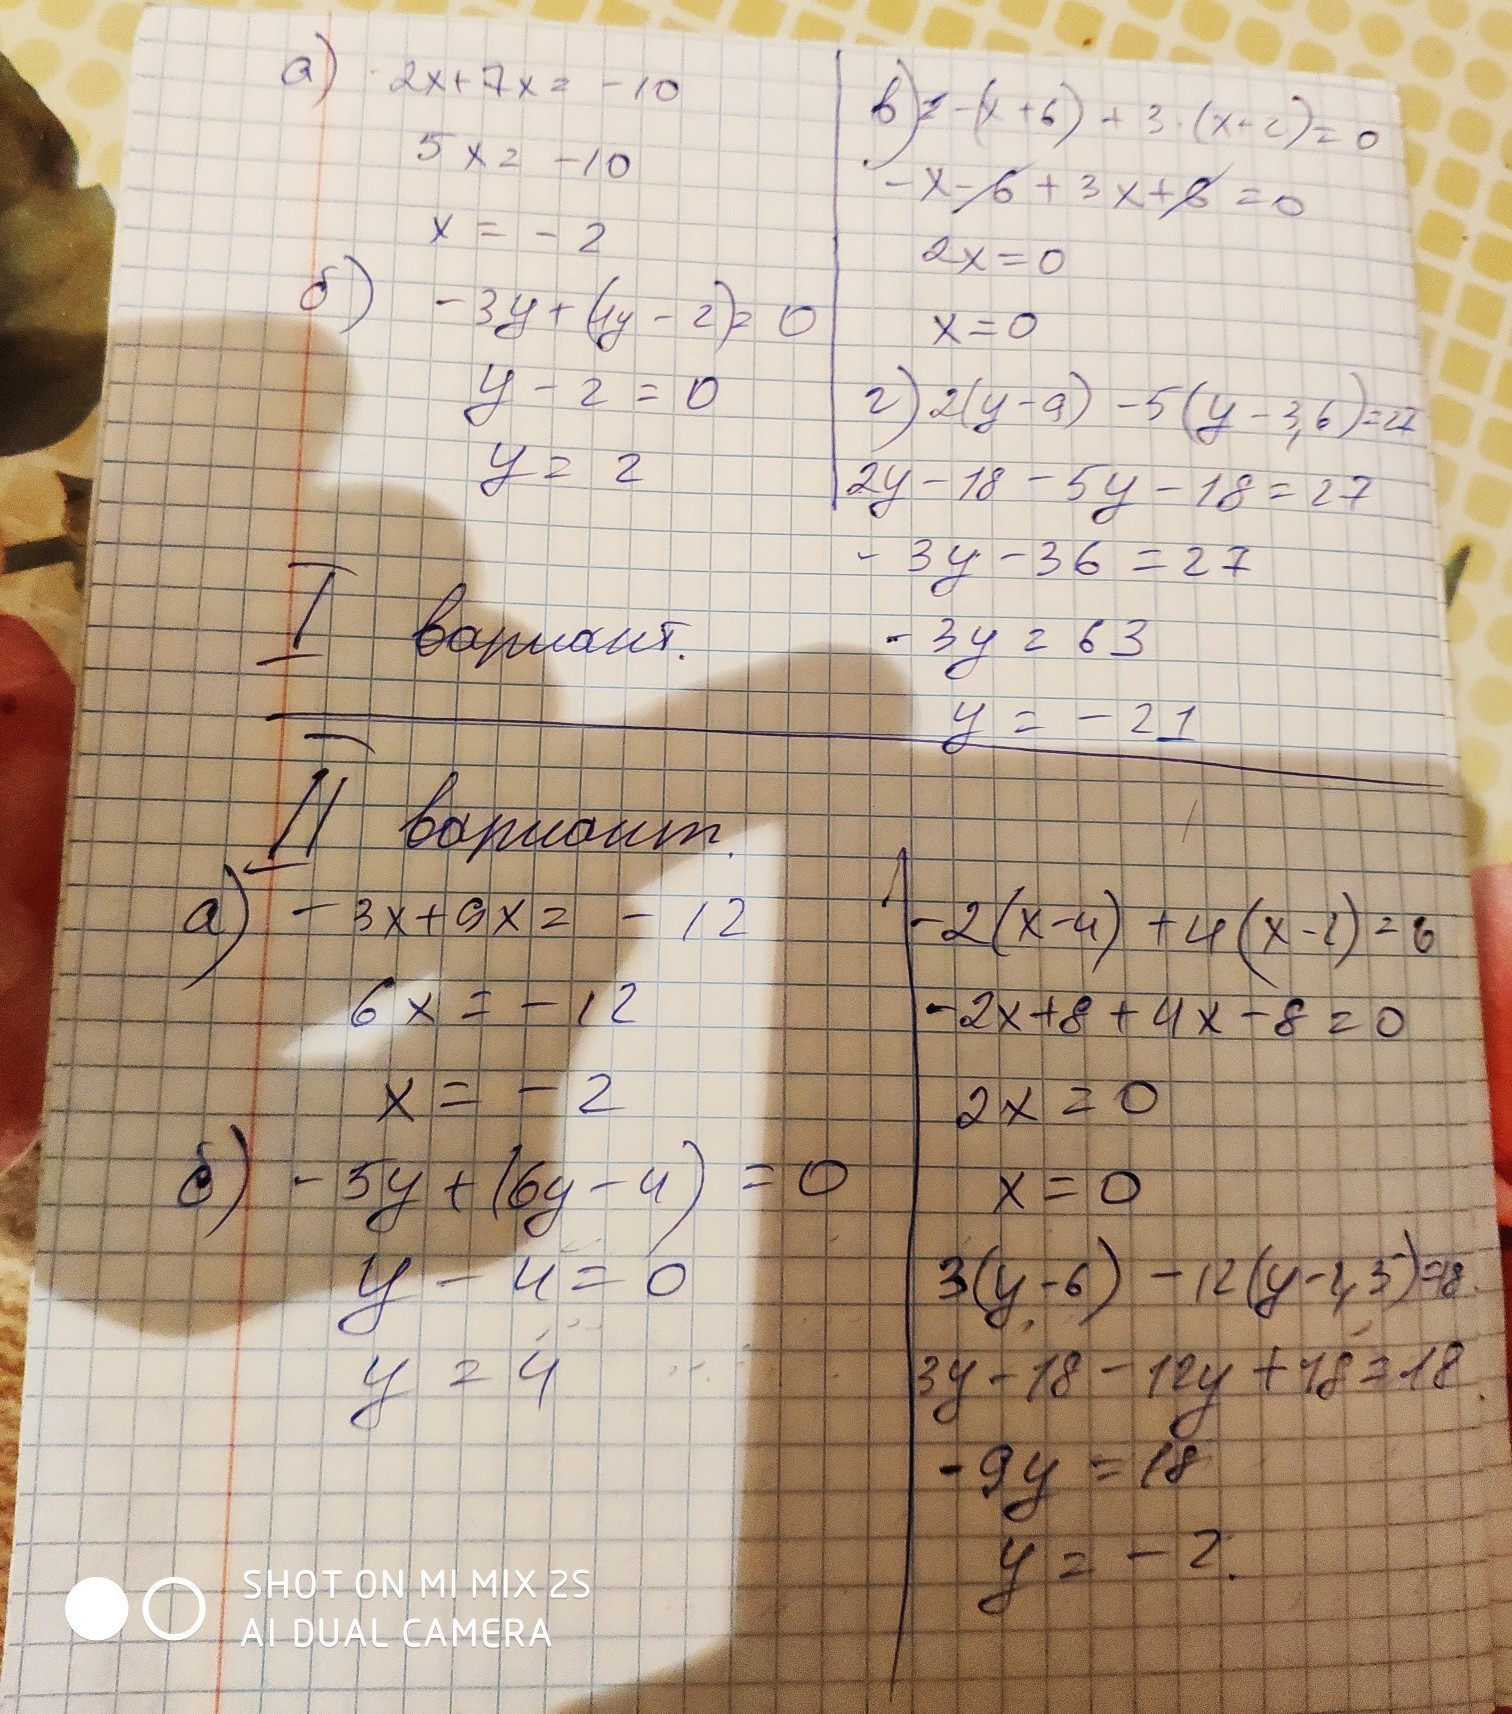 а) -2x+7x= -10
5x= -10
x = - 2
б) -3y+(4y-2)= 0
y - 2 = 0
y = 2
в) -(x+6) + 3·(x+2)=0
-x-6+3x+6=0
2x=0
x=0
г) 2(y-9) -5(y-3,6)=27
2y-18-5y-18=27
-3y-36=27
-3y=63
y = -21
I вариант.
II вариант.
а) -3x+9x= -12
6x = -12
x = - 2
б) -5y+(6y-4) =0
y - 4=0
y = 4
-2(x-4) +4(x-2)=0
-2x+8+4x-8=0
2x=0
x=0
3(y-6) -12(y-1,5)=18.
3y-18-12y+18=18.
-9y=18
y = -2.
SHOT ON MI MIX 2S
AI DUAL CAMERA